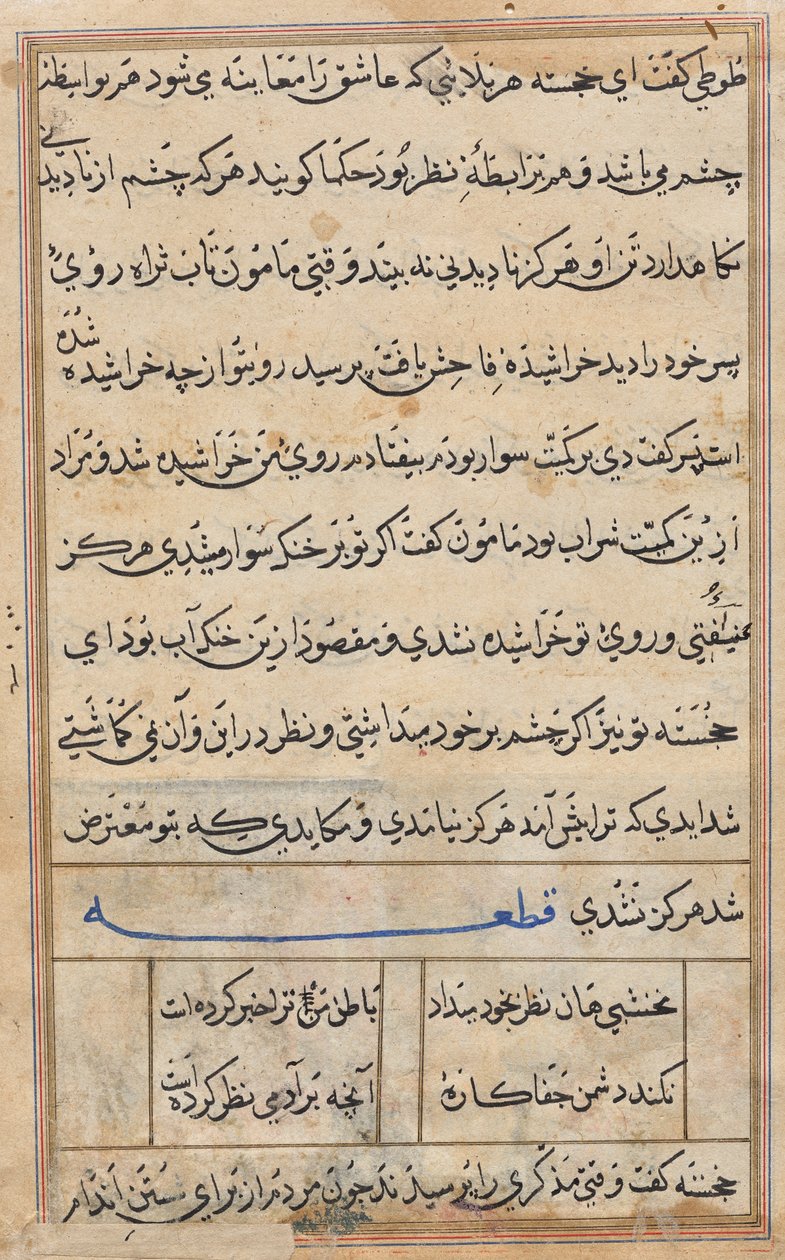 طوطي كفت اي خجسته هر بلائي كه عاشق را معاينه مي شود هم بواسطه
چشم مي باشد و هم برابطهٔ نظر بود حكما كويند هر كه چشم از ناديدني
نكاهدارد تن او هركز ناديدني نه بيند وقتي مامون تاب ثراه روي
پسر خود را ديد خراشيدهٔ فاحش يافت پرسيد روي تو از چه خراشيده شده
است پسر كفت دي بر كميت سوار بودم بيفتادم روي من خراشيده شد و مراد
ازين كميت شراب بود مامون كفت اكر تو بر خنك سوار ميشدي هركز
نيفتي و روي تو خراشيده نشدي و مقصود ازين خنك آب بود اي
خجسته تو نيز اكر چشم بر خود ميداشتي و نظر در اين و آن نمي كماشتي
شدايدي كه ترا پيش آمد هركز نيامدي و مكايدي كه بتو معترض
شد هركز نشدي قطعه
نخشبي هان نظر بخود ميدار باطن من ترا خبر كرده است
نكند دشمن جفاكاره آنچه بر آدمي نظر كرده است
خجسته كفت وقتي مذكري را پرسيدند چون مردم از براي شستن اندام